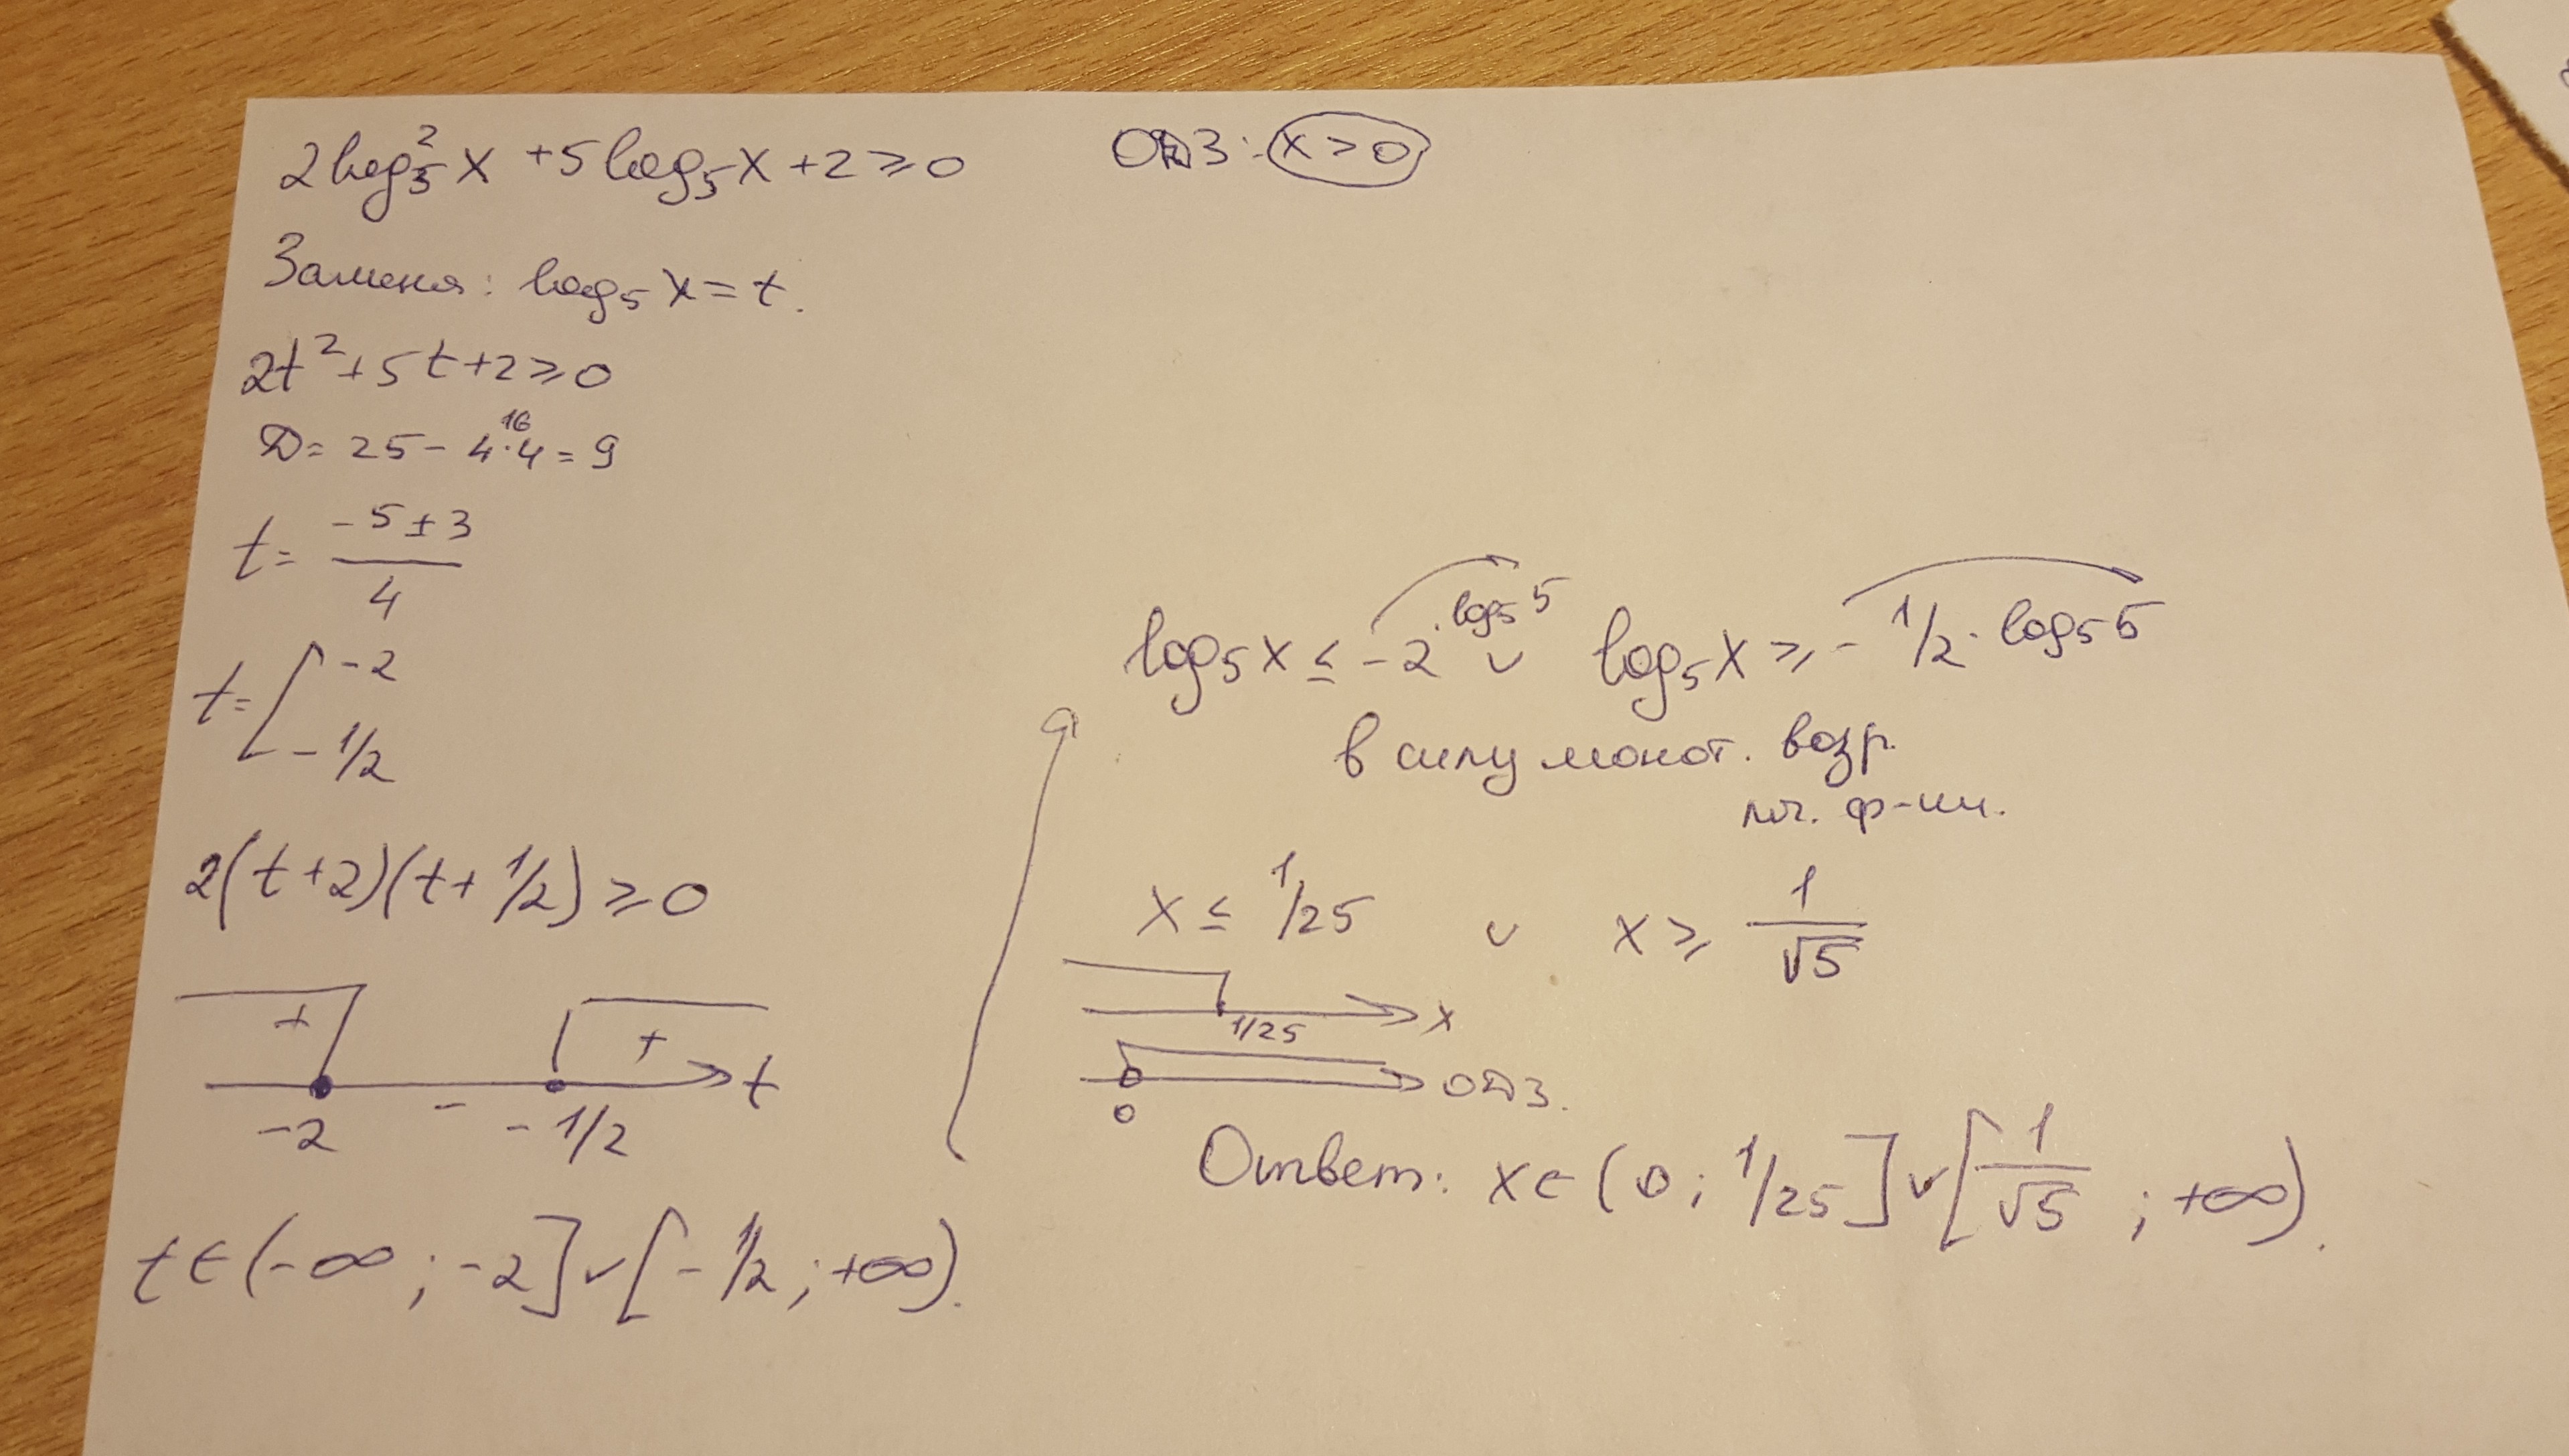 2log₅²x + 5log₅x + 2 ≥ 0
ОДЗ: x > 0
Замена: log₅x = t.
2t² + 5t + 2 ≥ 0
16
D = 25 - 4·4 = 9
t = (-5 ± 3)/4
t = [ -2
-1/2
2(t+2)(t+1/2) ≥ 0
+ +
- t
-2 -1/2
t ∈ (-∞; -2] ∪ [-1/2; +∞).
log₅x ≤ -2·log₅5 ∪ log₅x ≥ -1/2·log₅5
в силу монот. возр.
ф-ии.
x ≤ 1/25 ∪ x ≥ 1/√5
1/25 x
0 ОДЗ.
Ответ: x ∈ (0; 1/25] ∪ [1/√5; +∞).